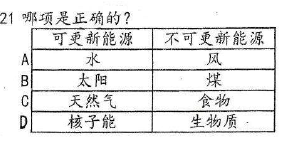 21 哪项是正确的?
可更新能源 不可更新能源
A 水 风
B 太阳 煤
C 天然气 食物
D 核子能 生物质